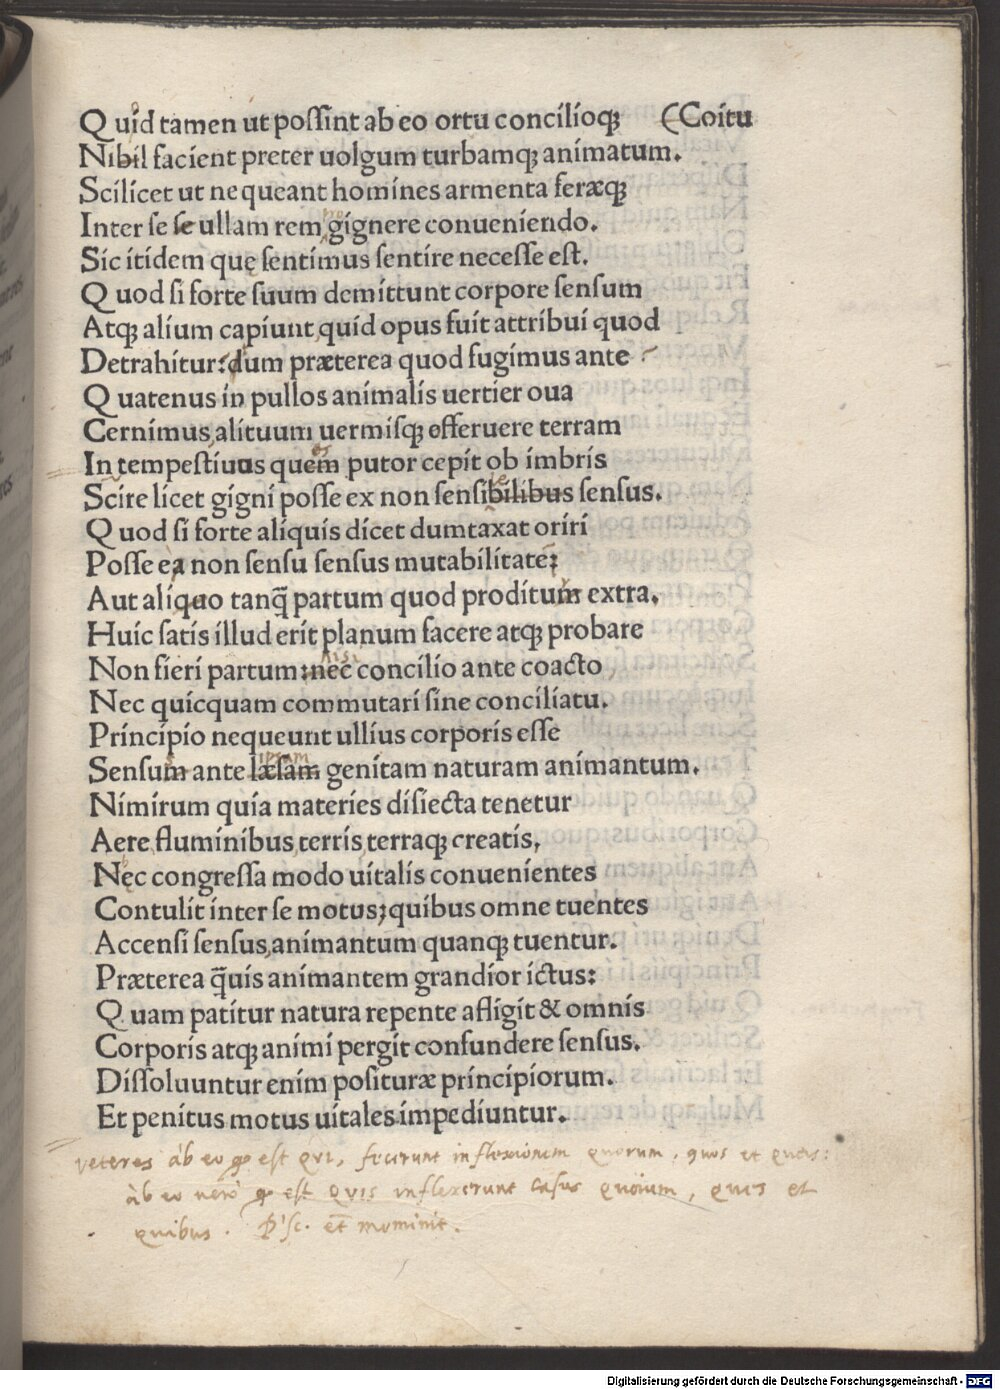 Quid tamen ut poſſint ab eo ortu concilioqꝫ (Coitu
Nihil facient preter uolgum turbamqꝫ animatum.
Scilicet ut nequeant homines armenta feræqꝫ
Inter ſe ſe ullam rem gignere conueniendo.
Sic itidem quę ſentimus ſentire neceſſe eſt.
Quod ſi forte ſuum demittunt corpore ſenſum
Atqꝫ alium capiunt quid opus fuit attribui quod
Detrahitur: dum præterea quod fugimus ante
Quatenus in pullos animalis uertier oua
Cernimus alituum uermiſqꝫ efferuere terram
In tempeſtiuus quem putor cepit ob imbris
Scire licet gigni poſſe ex non ſenſibilibus ſenſus.
Quod ſi forte aliquis dicet dumtaxat oriri
Poſſe ea non ſenſu ſenſus mutabilitate:
Aut aliquo tanq̄ partum quod proditum extra.
Huic ſatis illud erit planum facere atqꝫ probare
Non fieri partum: nec concilio ante coacto
nisi
Nec quicquam commutari ſine conciliatu.
Principio nequeunt ullius corporis eſſe
Senſum ante læſam genitam naturam animantum.
ipsam
Nimirum quia materies diſiecta tenetur
Aere fluminibus terris terraqꝫ creatis,
Nęc congreſſa modo uitalis conuenientes
Contulit inter ſe motus; quibus omne tuentes
Accenſi ſenſus animantum quanqꝫ tuentur.
Præterea q̄uis animantem grandior ictus:
Quam patitur natura repente afligit & omnis
Corporis atqꝫ animi pergit confundere ſenſus.
Diſſoluuntur enim poſituræ principiorum.
Et penitus motus uitales impediuntur.
veteres ab eo qd est QVI, fecerunt inflexionem quorum, quos et queis:
ab eo vero qd est QVIS inflexerunt casus quoium, ques et
quibus. Prisc. et meminit.
Digitalisierung gefördert durch die Deutsche Forschungsgemeinschaft - DFG